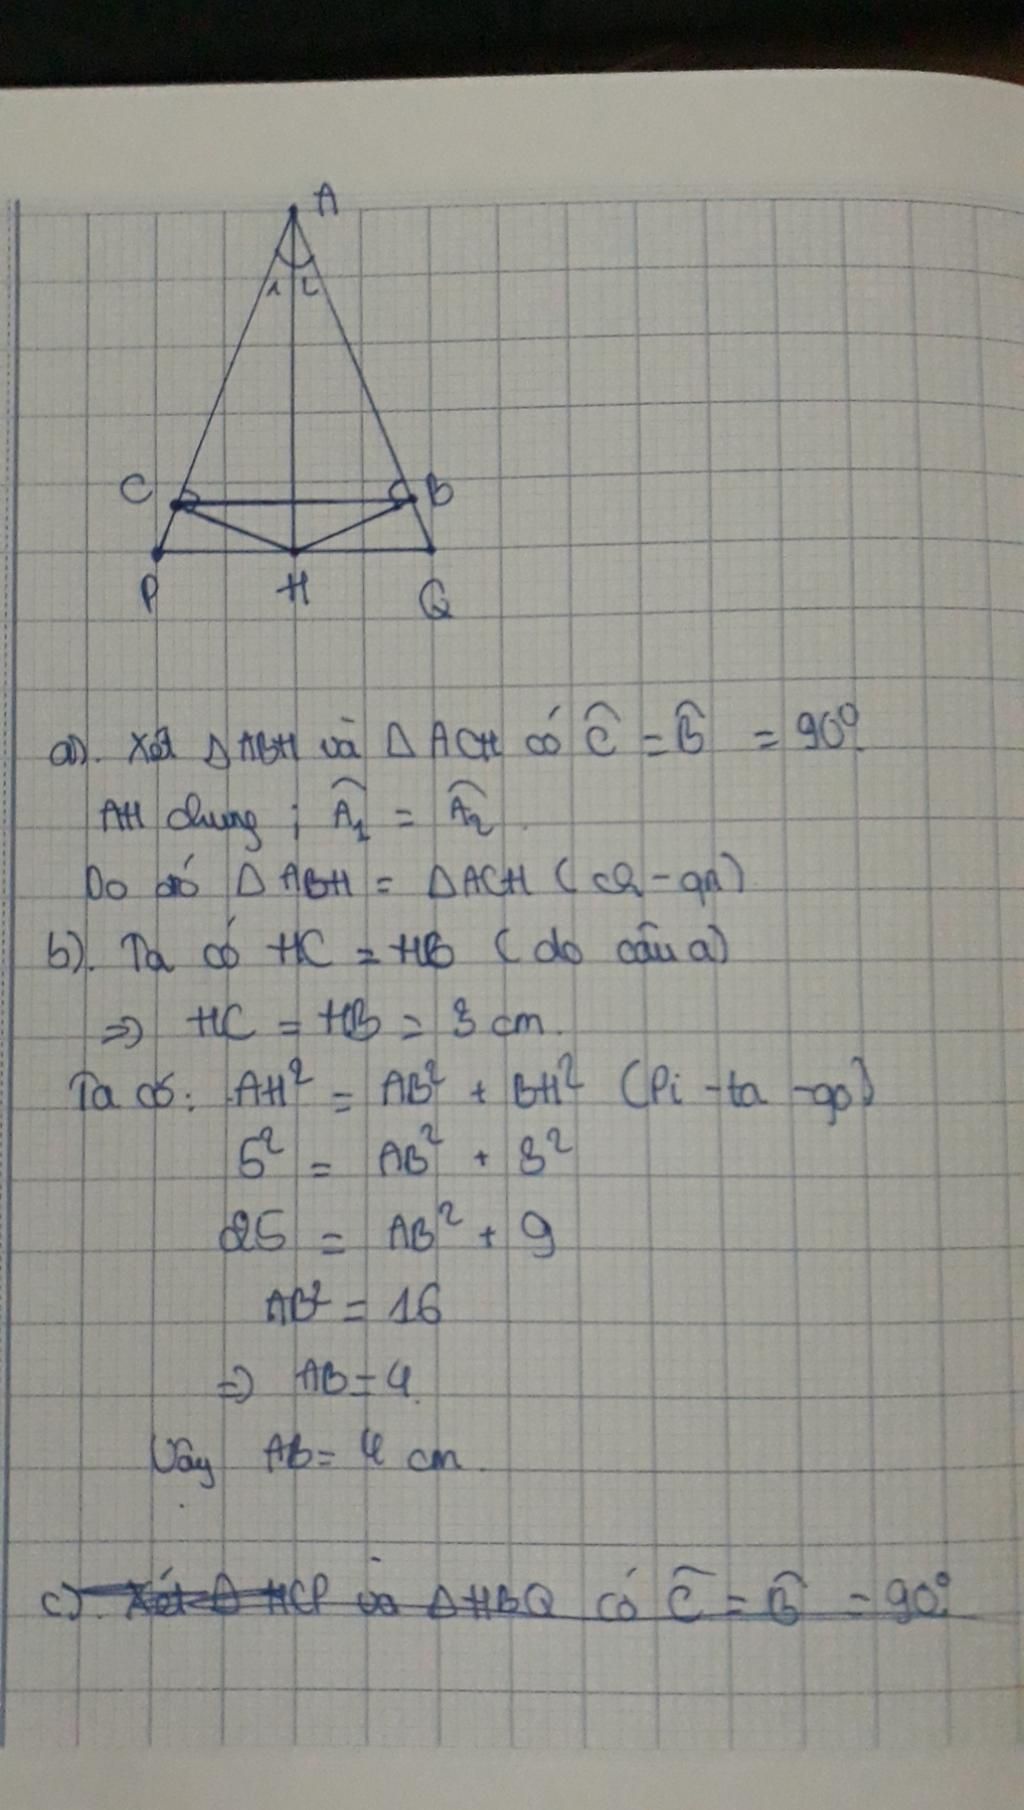 A
1 2
C B
P H Q
a). Xét Δ ABH và Δ ACH có Ĉ = B̂ = 90°
AH chung ; Â₁ = Â₂.
Do đó Δ ABH = Δ ACH (ch - gn)
b). Ta có HC = HB (do câu a)
=> HC = HB = 3 cm.
Ta có: AH² = AB² + BH² (Pi - ta - go)
5² = AB² + 3²
25 = AB² + 9
AB² = 16
=> AB = 4
Vậy AB = 4 cm.
c). Xét Δ HCP và Δ HBQ có Ĉ = B̂ = 90°